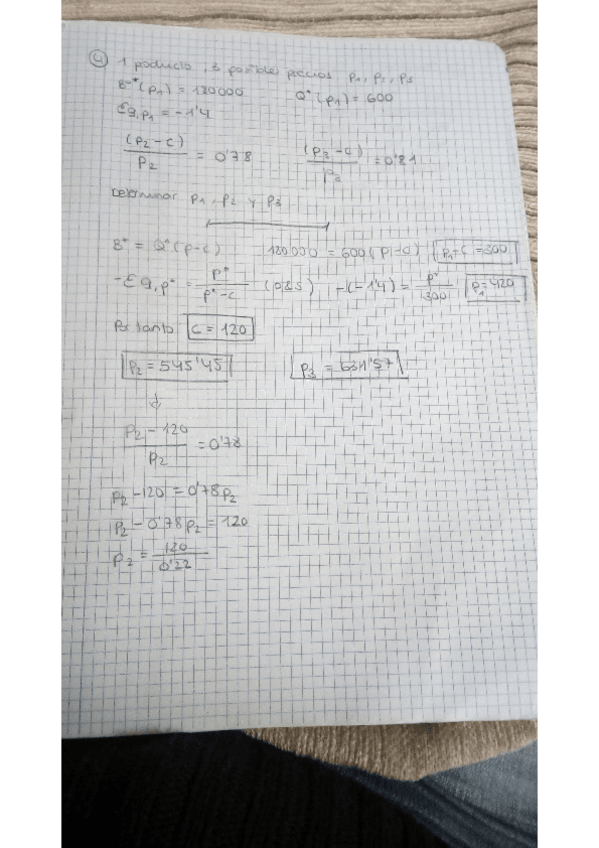 ④ 1 producto, 3 posibles precios p₁, p₂, p₃
B*(p₁) = 180000 Q*(p₁) = 600
Eq,p₁ = -1'4
(p₂-c)/p₂ = 0'78 (p₃-c)/p₃ = 0'81
Determinar p₁, p₂ y p₃
B* = Q*(p-c) 180.000 = 600(p₁-c) p₁-c = 300
-Eq,p* = p*/(p*-c) (D&S) -(-1'4) = p*/300 p₁ = 420
Por tanto c = 120
p₂ = 545'45 p₃ = 631'57
↓
(p₂-120)/p₂ = 0'78
p₂-120 = 0'78p₂
p₂-0'78p₂ = 120
p₂ = 120/0'22